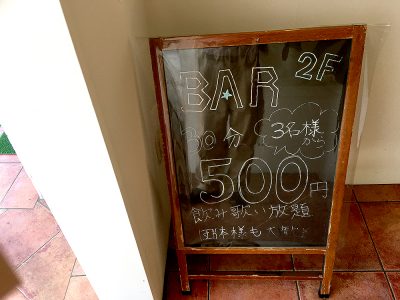 BAR 2F
30分 3名様
から
500円
飲み歌い放題
団体様も大